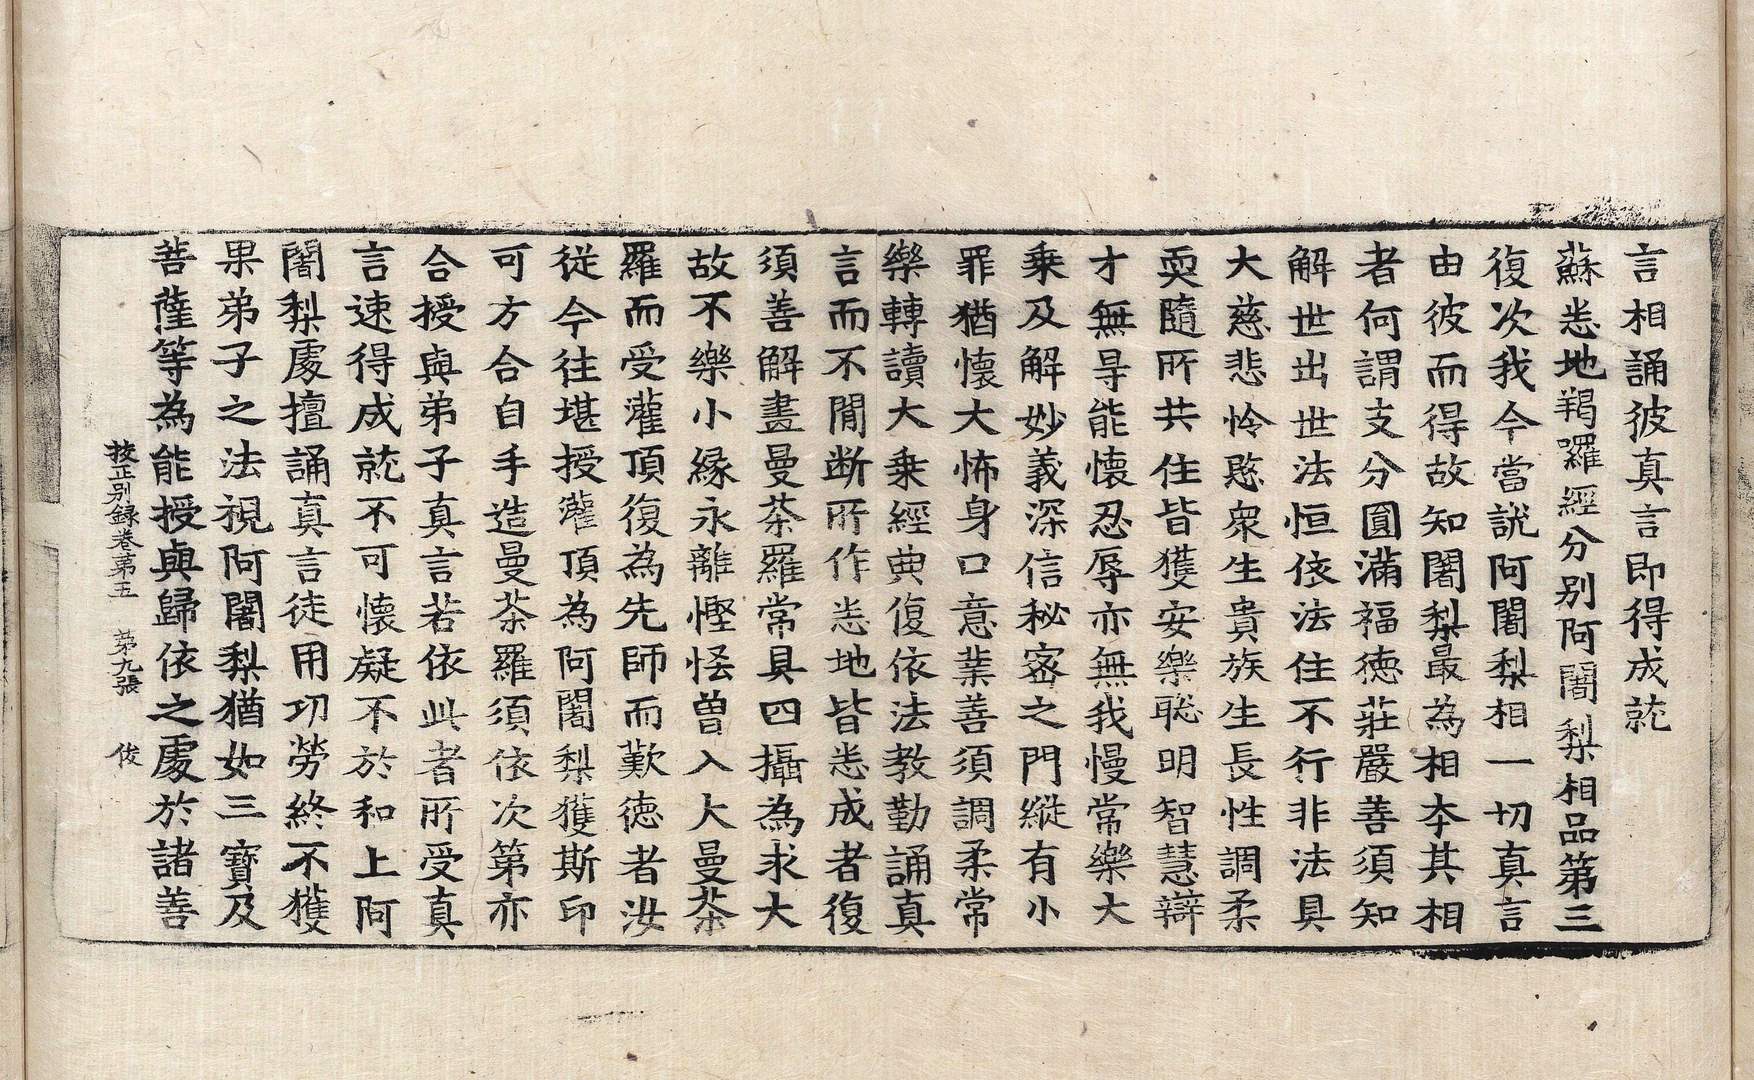 言相誦彼真言即得成就
蘇悉地羯囉經分别阿闍梨相品第三
復次我今當說阿闍梨相一切真言
由彼而得故知闍梨最為相夲其相
者何謂支分圓滿福德莊嚴善須知
解世出世法恒依法住不行非法具
大慈悲怜愍衆生貴族生長性調柔
耎隨所共住皆獲安樂聡明智慧辯
才無㝵能懷忍辱亦無我慢常樂大
乗及解妙義深信秘密之門縱有小
罪猶懷大怖身口意業善須調柔常
樂轉讀大乗經典復依法教勤誦真
言而不閒断所作悉地皆悉成者復
須善解畫曼荼羅常具四攝為求大
故不樂小縁永離慳恡曽入大曼荼
羅而受灌頂復為先師而歎德者汝
從今往堪授灌頂為阿闍梨獲斯印
可方合自手造曼荼羅須依次第亦
合授與弟子真言若依此者所受真
言速得成就不可懷疑不於和上阿
闍梨䖏擅誦真言徒用功勞終不獲
果弟子之法視阿闍梨猶如三寶及
菩薩等為能授與歸依之䖏於諸善
挍正别録卷第五　第九張　俊